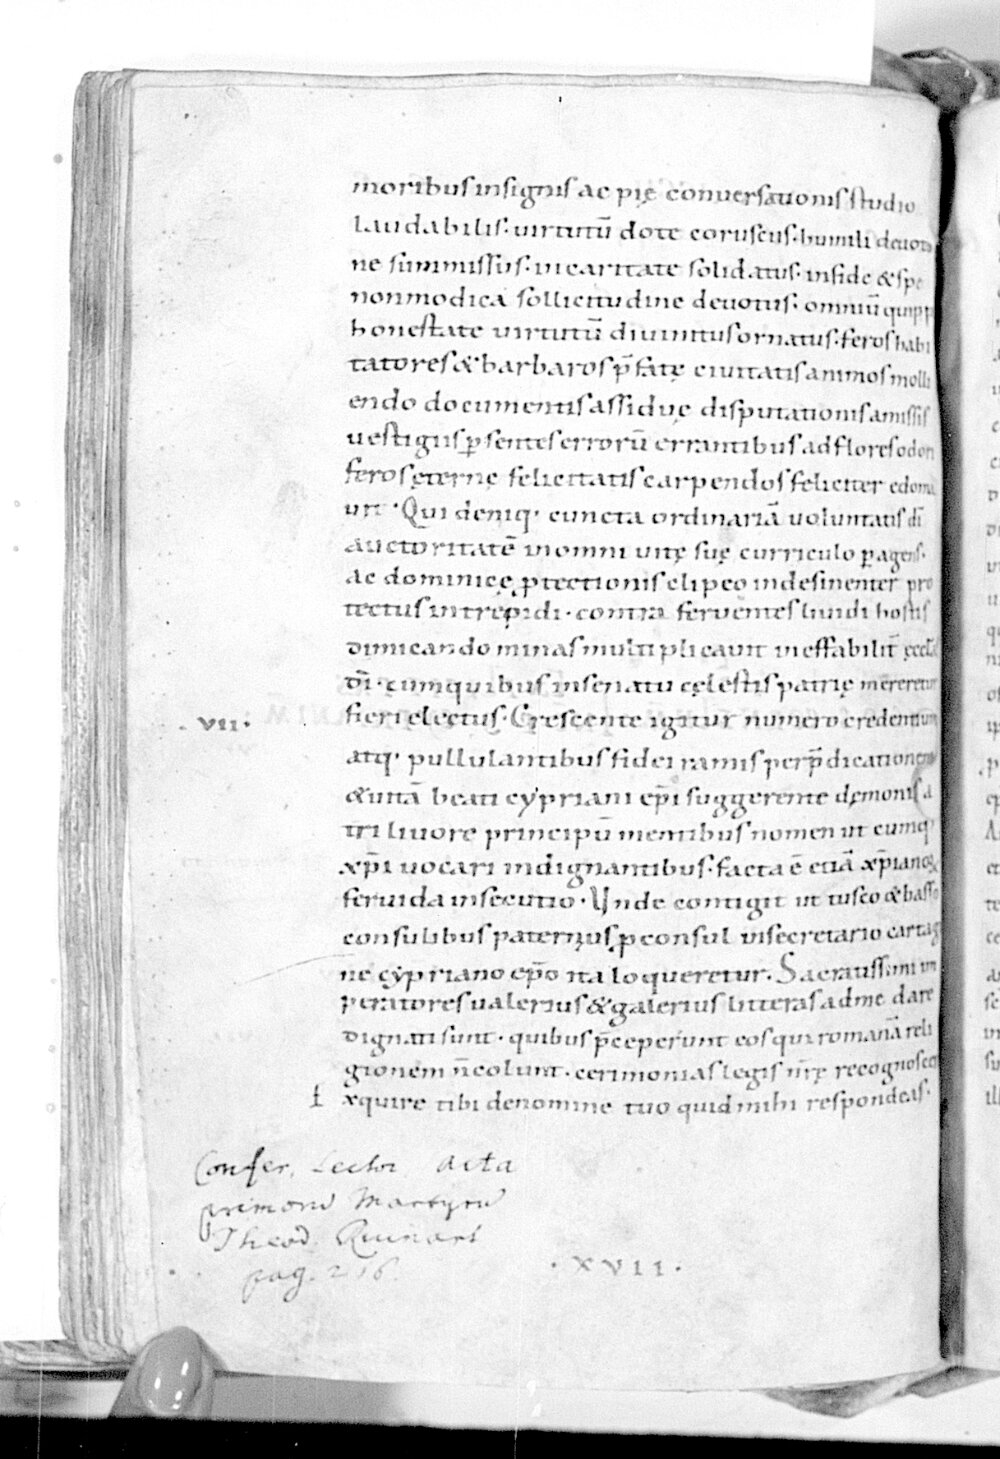 moribus insignis ac pię conversationis studio
laudabilis· uirtutū dote coruscus· humili deuoti
ne summissus· in caritate solidatus· in fide & spe
non modica sollicitudine deuotus· omniū quipp
honestate uirtutū diuinitus ornatus· feros habi
tatores & barbaros p̄fatę ciuitatis animos molli
endo documentis assiduę disputationis amissis
uestigiis p̲sentes errorū errantibus ad flores odori
feros ęternę felicitatis carpendos feliciter edoma
uit· Qui deniq· cuncta ordinariā uoluntatis dī
auctoritatē in omni uitę suę curriculo p̲agens·
ac dominicę ꝓtectionis clipeo indesinenter pro
tectus intrepidi· contra feruentes liuidi hostis
dimicando minas multiplicauit ineffabilit̄ ęccłę
dī· cum quibus in senatu cęlestis patrię mereretur
·VII· fieri electus· Crescente igitur numero credentium
atq· pullulantibus fidei ramis per p̄dicationem
& uitā beati cypriani ep̄i suggerente dęmonis a
tri liuore principū mentibus nomen ut cumq·
xp̄i uocari indignantibus· facta ē etiā xp̄ianos
feruida insecutio· Unde contigit ut tusco & basso
consulibus paternus ꝓconsul in secretario cartag
ne cypriano ep̄o ita loqueretur· Sacratissimi im
peratores ualerius & galerius litteras ad me dare
dignati sunt· quibus p̄ceperunt eos qui romanā reli
gionem n̄ colunt· cerimonias legis n̄rę recognoscer
ł xquire tibi de nomine tuo quid mihi respondeas·
Confer, Lector acta
primorū Martyrū
Theod. Ruinart
pag. 216.
·XVII·